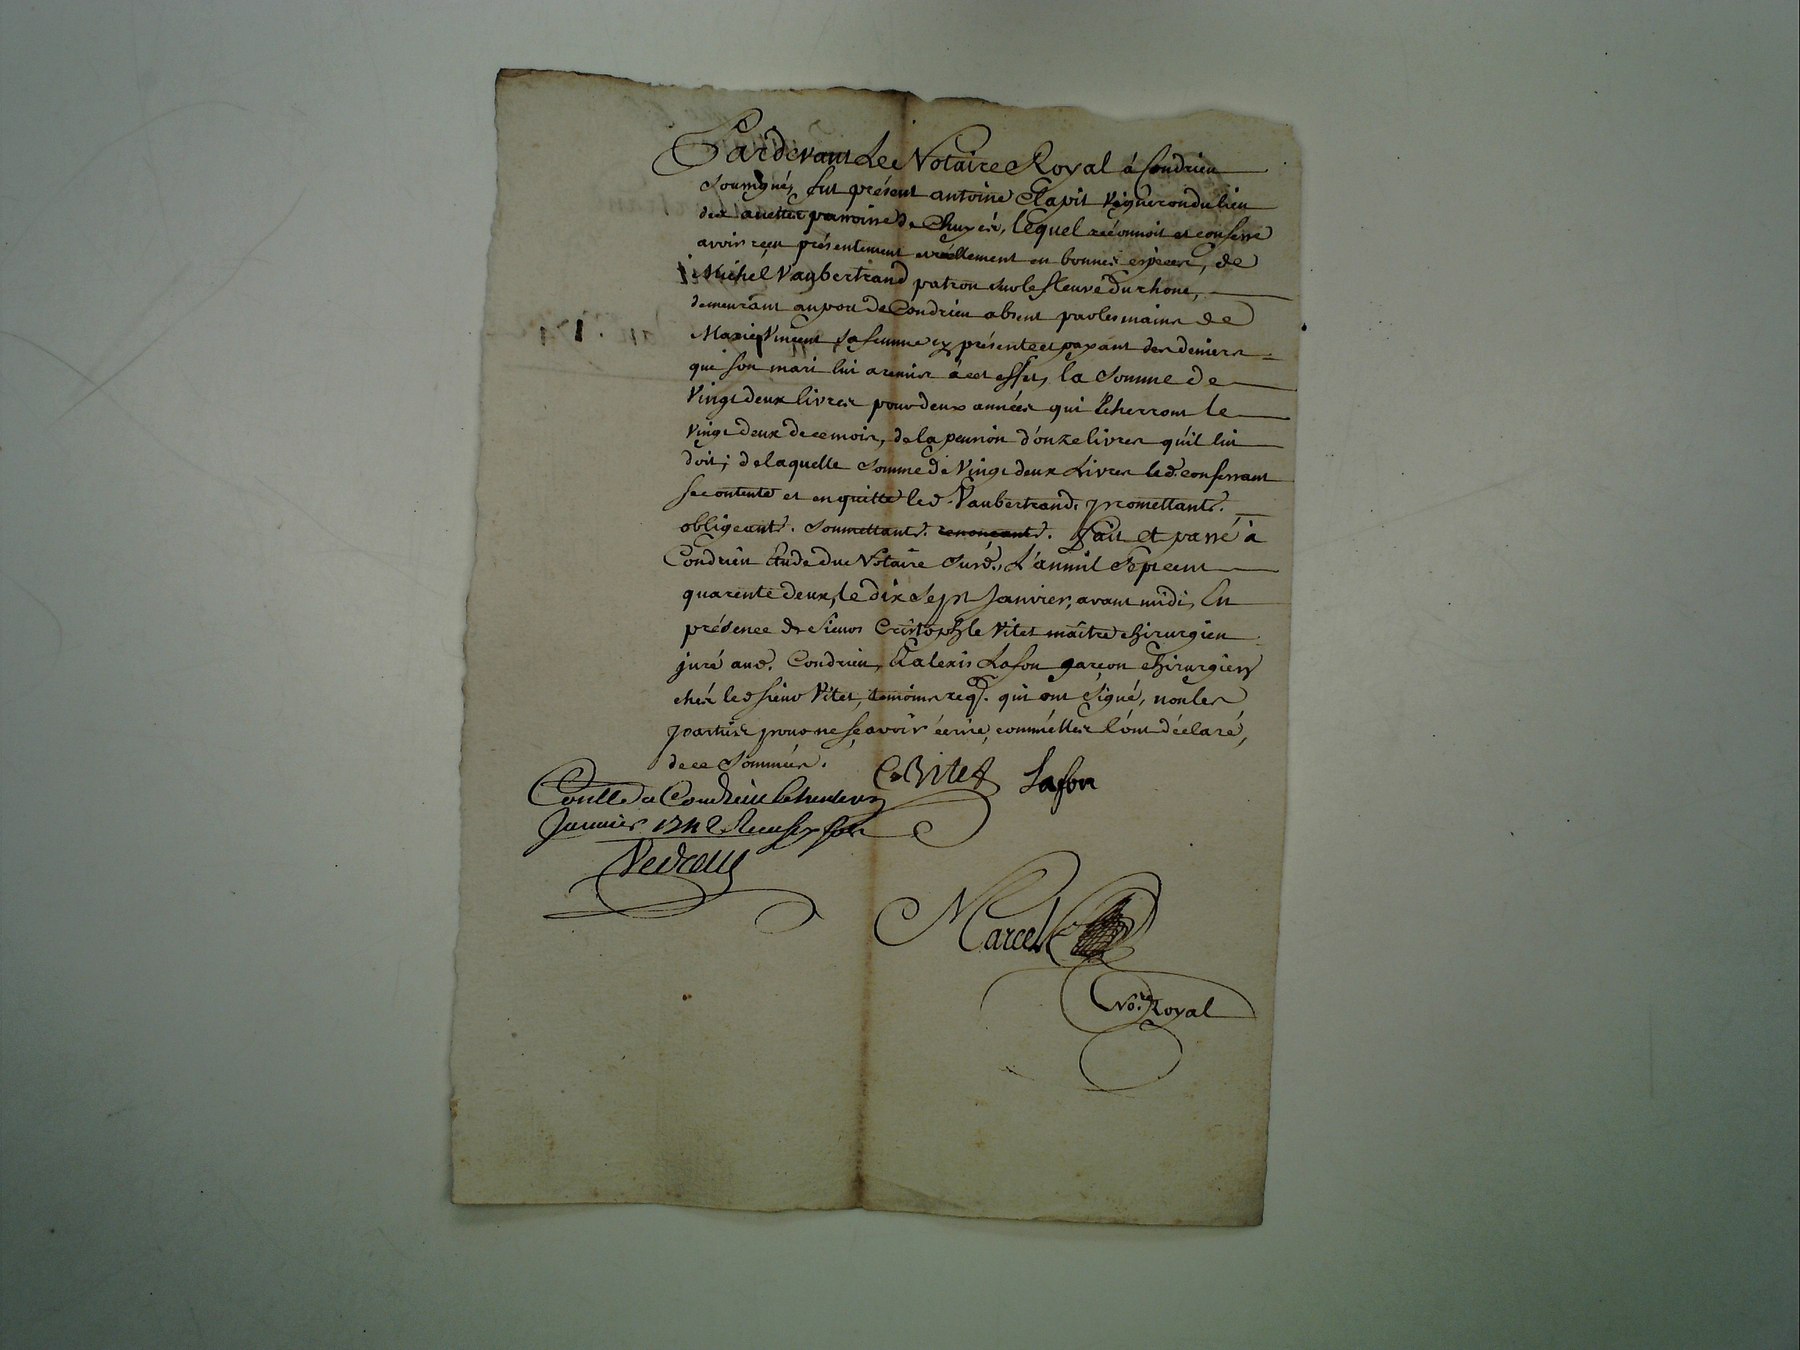 Pardevant Le Notaire Royal à Condrieu
soussigné, fut présent antoine Clapit vigneron du lieu
des parroisse de Chuyés, lequel reconnoit et confesse
avoir reçu présentement et réellement en bonnes espèces, de
Michel Vaubertrand patron sur le fleuve du rhone,
demeurant au port de Condrieu absent par les mains de
Marie Vincent sa femme cy présente et payant des deniers
que son mari lui a remis à cet effet, la Somme de
Vingt deux livres pour deux années qui écherront le
vingt deux de ce mois, de la pension d'onze livres qu'il lui
doit; de laquelle somme de Vingt deux Livres led. confessant
se contente et en quitte led. Vaubertrand, promettant &.
obligeant &. soumettant &. renonçant &. fait et passé à
Condrieu Etude du Notaire susd., L'an mil sept cent
quarente deux, le dix sept Janvier, avant midi, En
présence de sieur Cristophle Vitet maître chirurgien
juré aud. Condrieu, & alexis Lafon garçon chirurgien
chés led. sieur Vitet, témoins req. qui ont signé, non les
parties pour ne sçavoir écrire, comm'elles l'ont déclaré,
de ce sommées.
C. Vitet Lafon
Conllé a Condrieu le
Janvier 1742 Reçu six sols
Marcel
No.re Royal